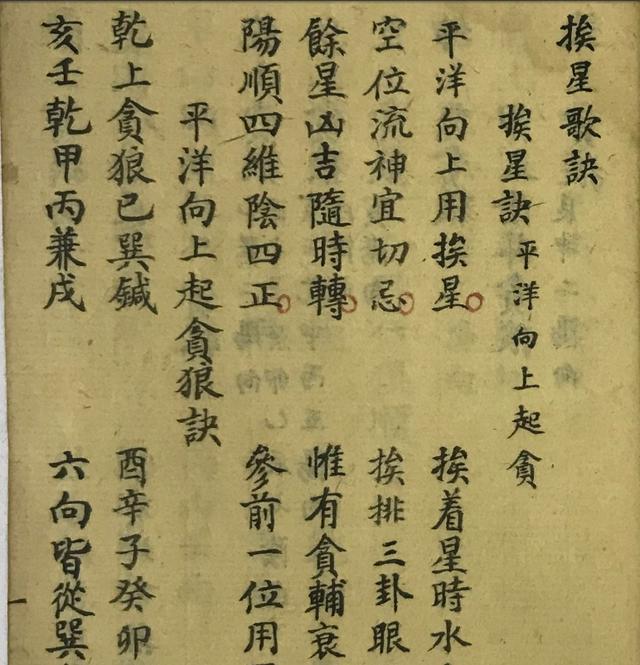 挨星歌訣
挨星訣 平洋向上起貪
平洋向上用挨星 挨着星時水
空位流神宜切忌 挨排三卦眼
餘星凶吉隨時轉 惟有貪輔衰
陽順四維陰四正 參前一位用
平洋向上起貪狼訣
乾上貪狼巳巽鍼 酉辛子癸卯
亥壬乾甲丙兼戌 六向皆從巽